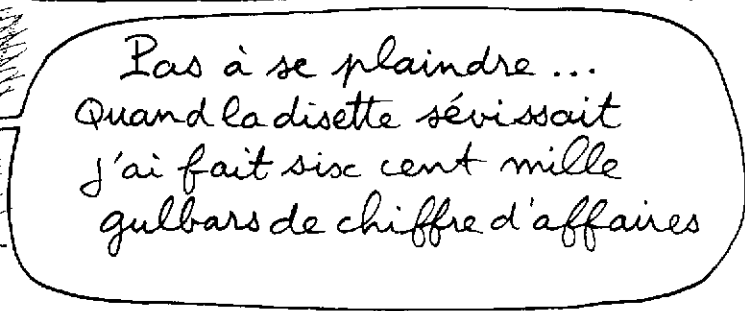 Pas à se plaindre...
Quand la disette sévissait
j'ai fait six cent mille
gulbars de chiffre d'affaires